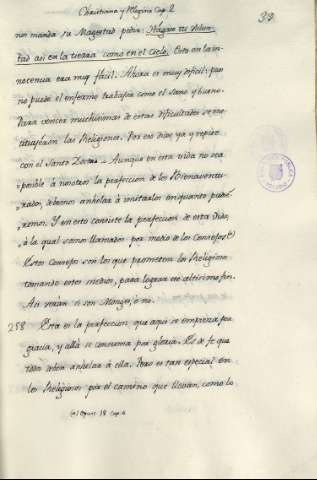 Christiana y Magina Cap. 2
33.
nos manda su Magestad pedir: Hagase tu Volun-
tad asi en la tierra como en el Cielo. Esto en la in-
nocencia era muy facil. Ahora es muy dificil: pues
no puede el enfermo trabajar como el sano y bueno.
Para vencer muchisimas de estas dificultades se ins-
tituyeron las Religiones. Por eso dixe ya y repito
con el Santo Doctor = Aunque en esta vida no sea
posible á nosotros la perfeccion de los Bienaventu-
rados, debemos anhelar à imitarlos en quanto pudie-
remos. Y en esto consiste la perfeccion de esta vida,
à la qual somos llamados por medio de los Consejos (a)
Estos Consejos son los que prometen los Religiosos
tomando estos medios, para lograr ese altisimo fin.
Asi verán si son Monges, ó no.
258 Esta es la perfeccion, que aqui se empieza por
gracia, y allà se consuma por gloria. Es de fe que
todos deben anhelar à ella. Pero es tan especial en
los Religiosos por el camino que llevan, como lo
(a) Opusc. 18 Cap. 6